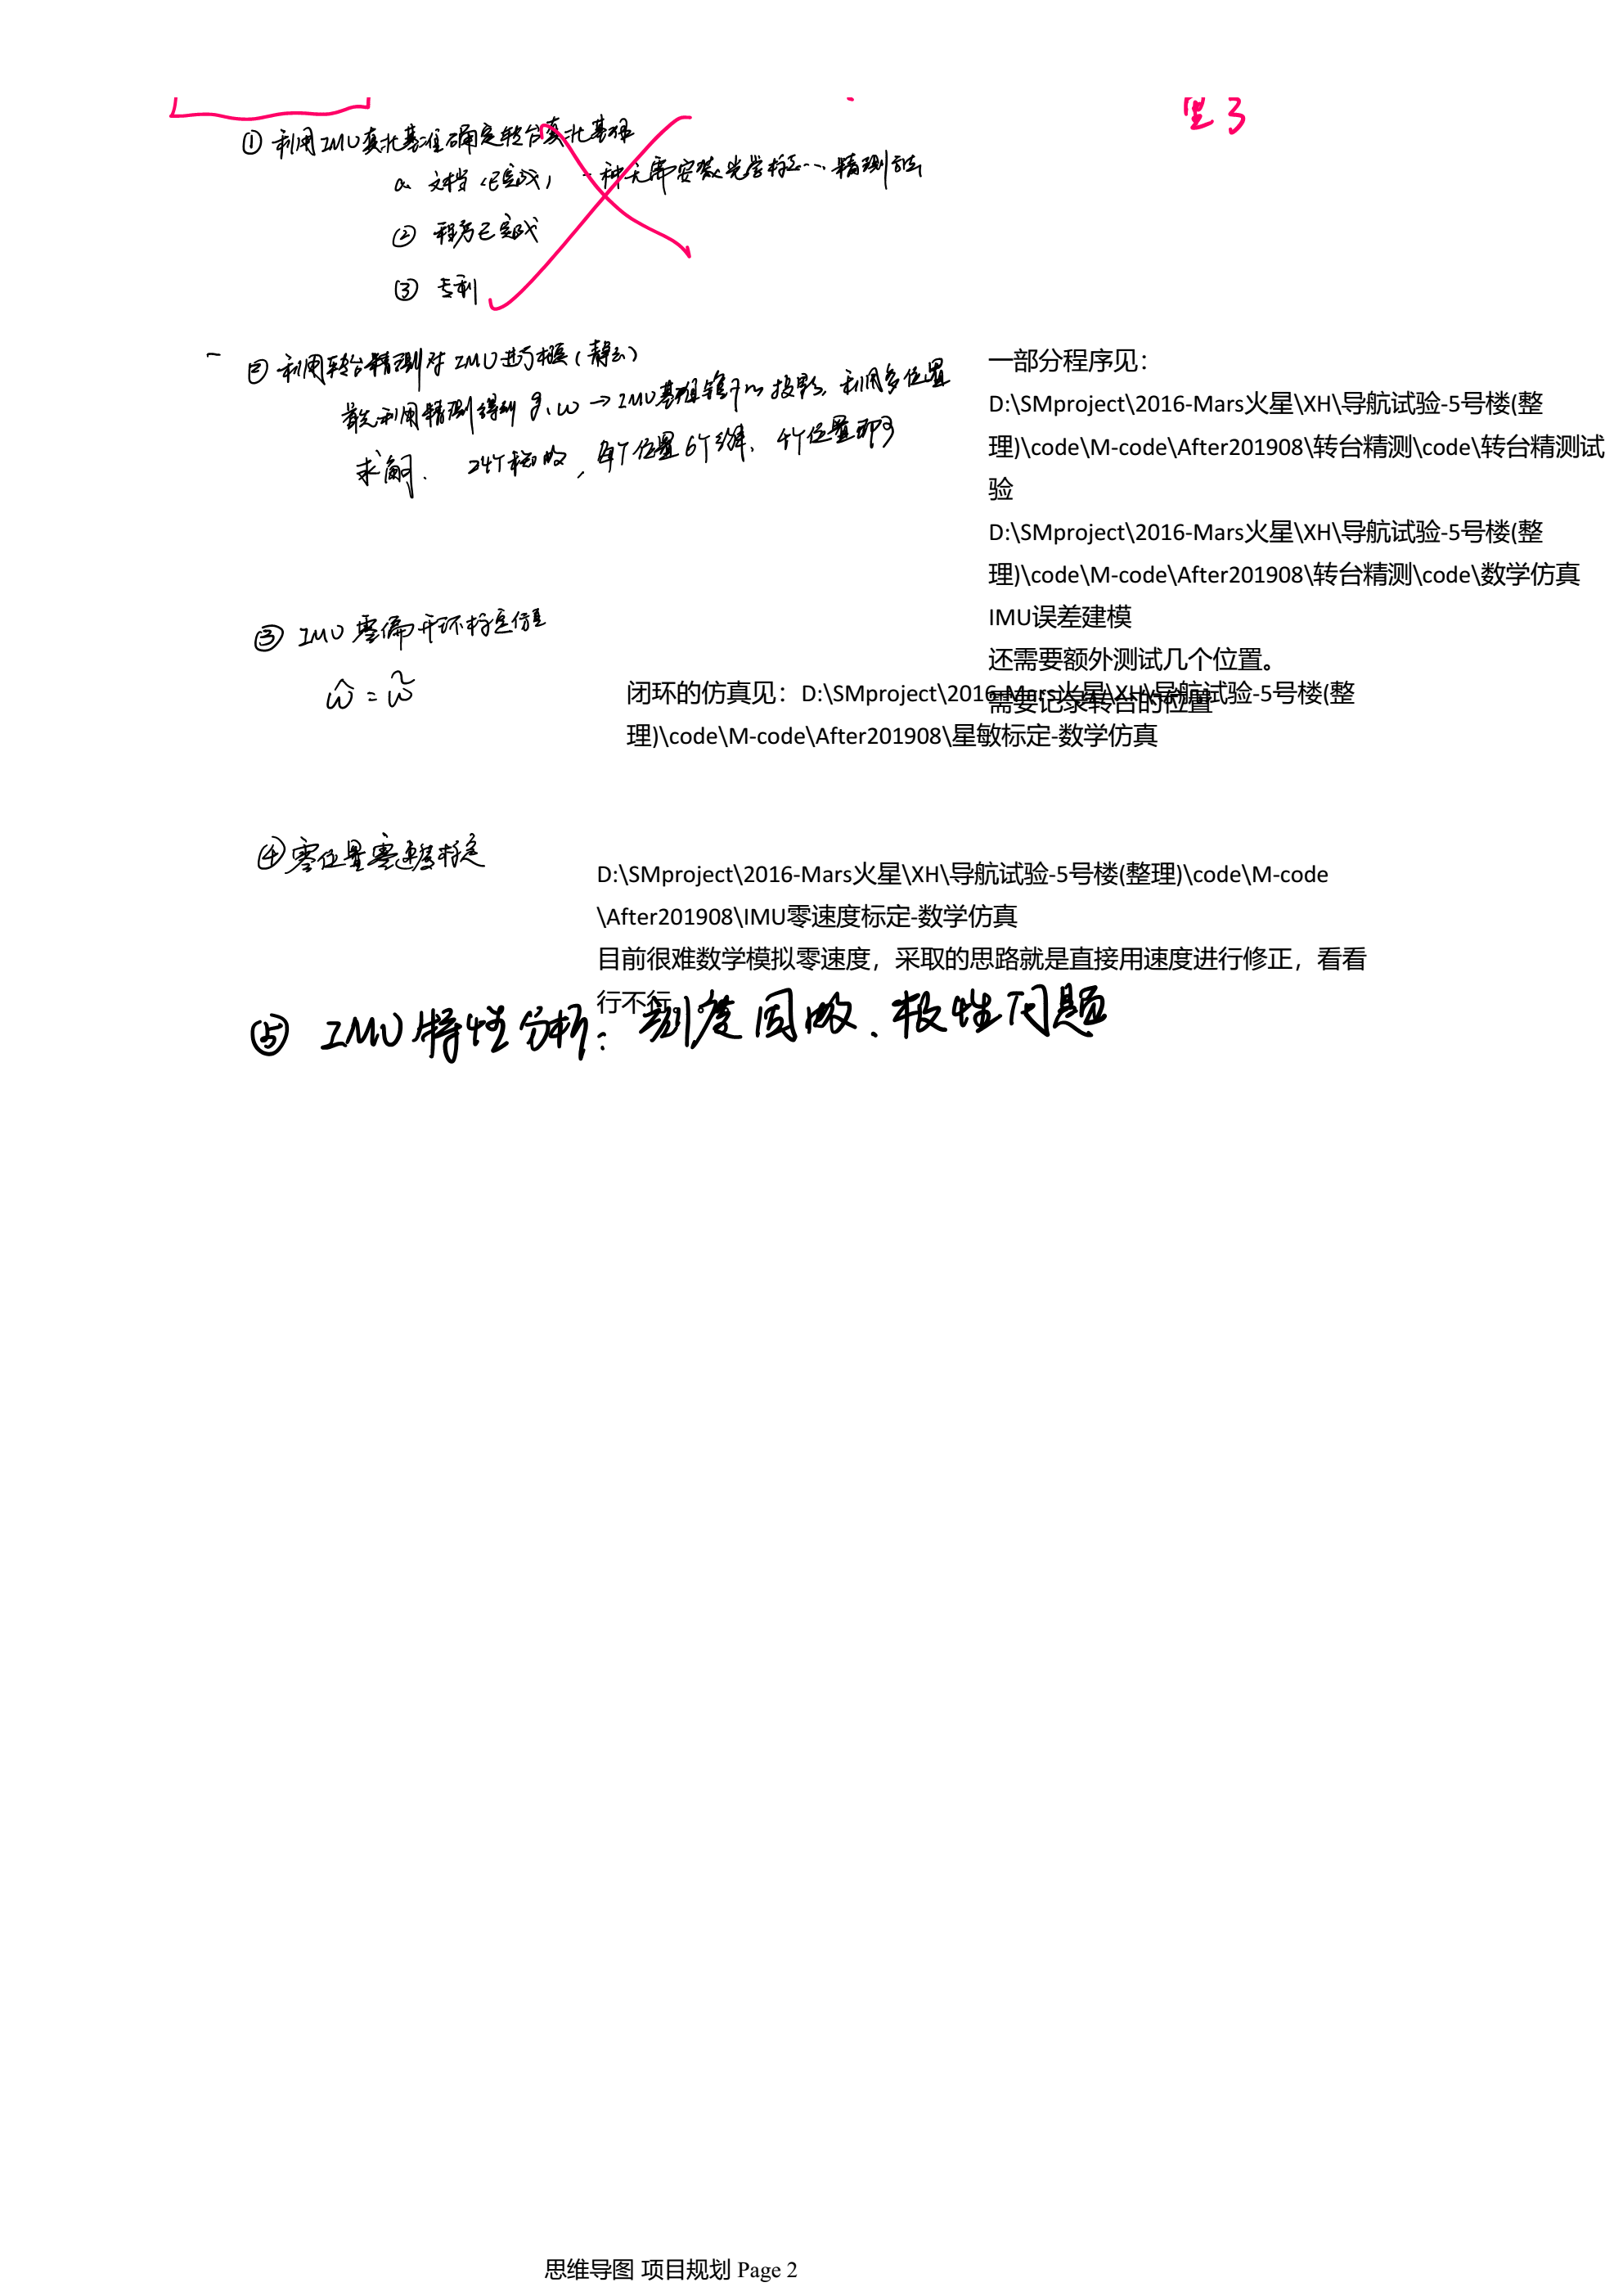 ① 利用IMU真北基准确定转台真北基准
a. 文档(已完成) 一种无需安装光学标志…精测方法
② 程序已完成
③ 专利
② 利用转台精测对IMU进行标定(静态)
首先利用精测得到 g、ω → IMU基准镜下的投影, 利用多位置
求解. 24个标函数, 每个位置6个结果, 4个位置即可
一部分程序见：
D:\SMproject\2016-Mars火星\XH\导航试验-5号楼(整
理)\code\M-code\After201908\转台精测\code\转台精测试
验
D:\SMproject\2016-Mars火星\XH\导航试验-5号楼(整
理)\code\M-code\After201908\转台精测\code\数学仿真
IMU误差建模
还需要额外测试几个位置。
需要记录转台的位置
③ IMU 零偏开环标定仿真
ω̂ = ω̃
闭环的仿真见：D:\SMproject\2016-Mars火星\XH\导航试验-5号楼(整
理)\code\M-code\After201908\星敏标定-数学仿真
④ 零位置零速度标定
D:\SMproject\2016-Mars火星\XH\导航试验-5号楼(整理)\code\M-code
\After201908\IMU零速度标定-数学仿真
目前很难数学模拟零速度，采取的思路就是直接用速度进行修正，看看
行不行。
⑤ IMU特性分析: 刻度因数、极性问题
思维导图 项目规划 Page 2